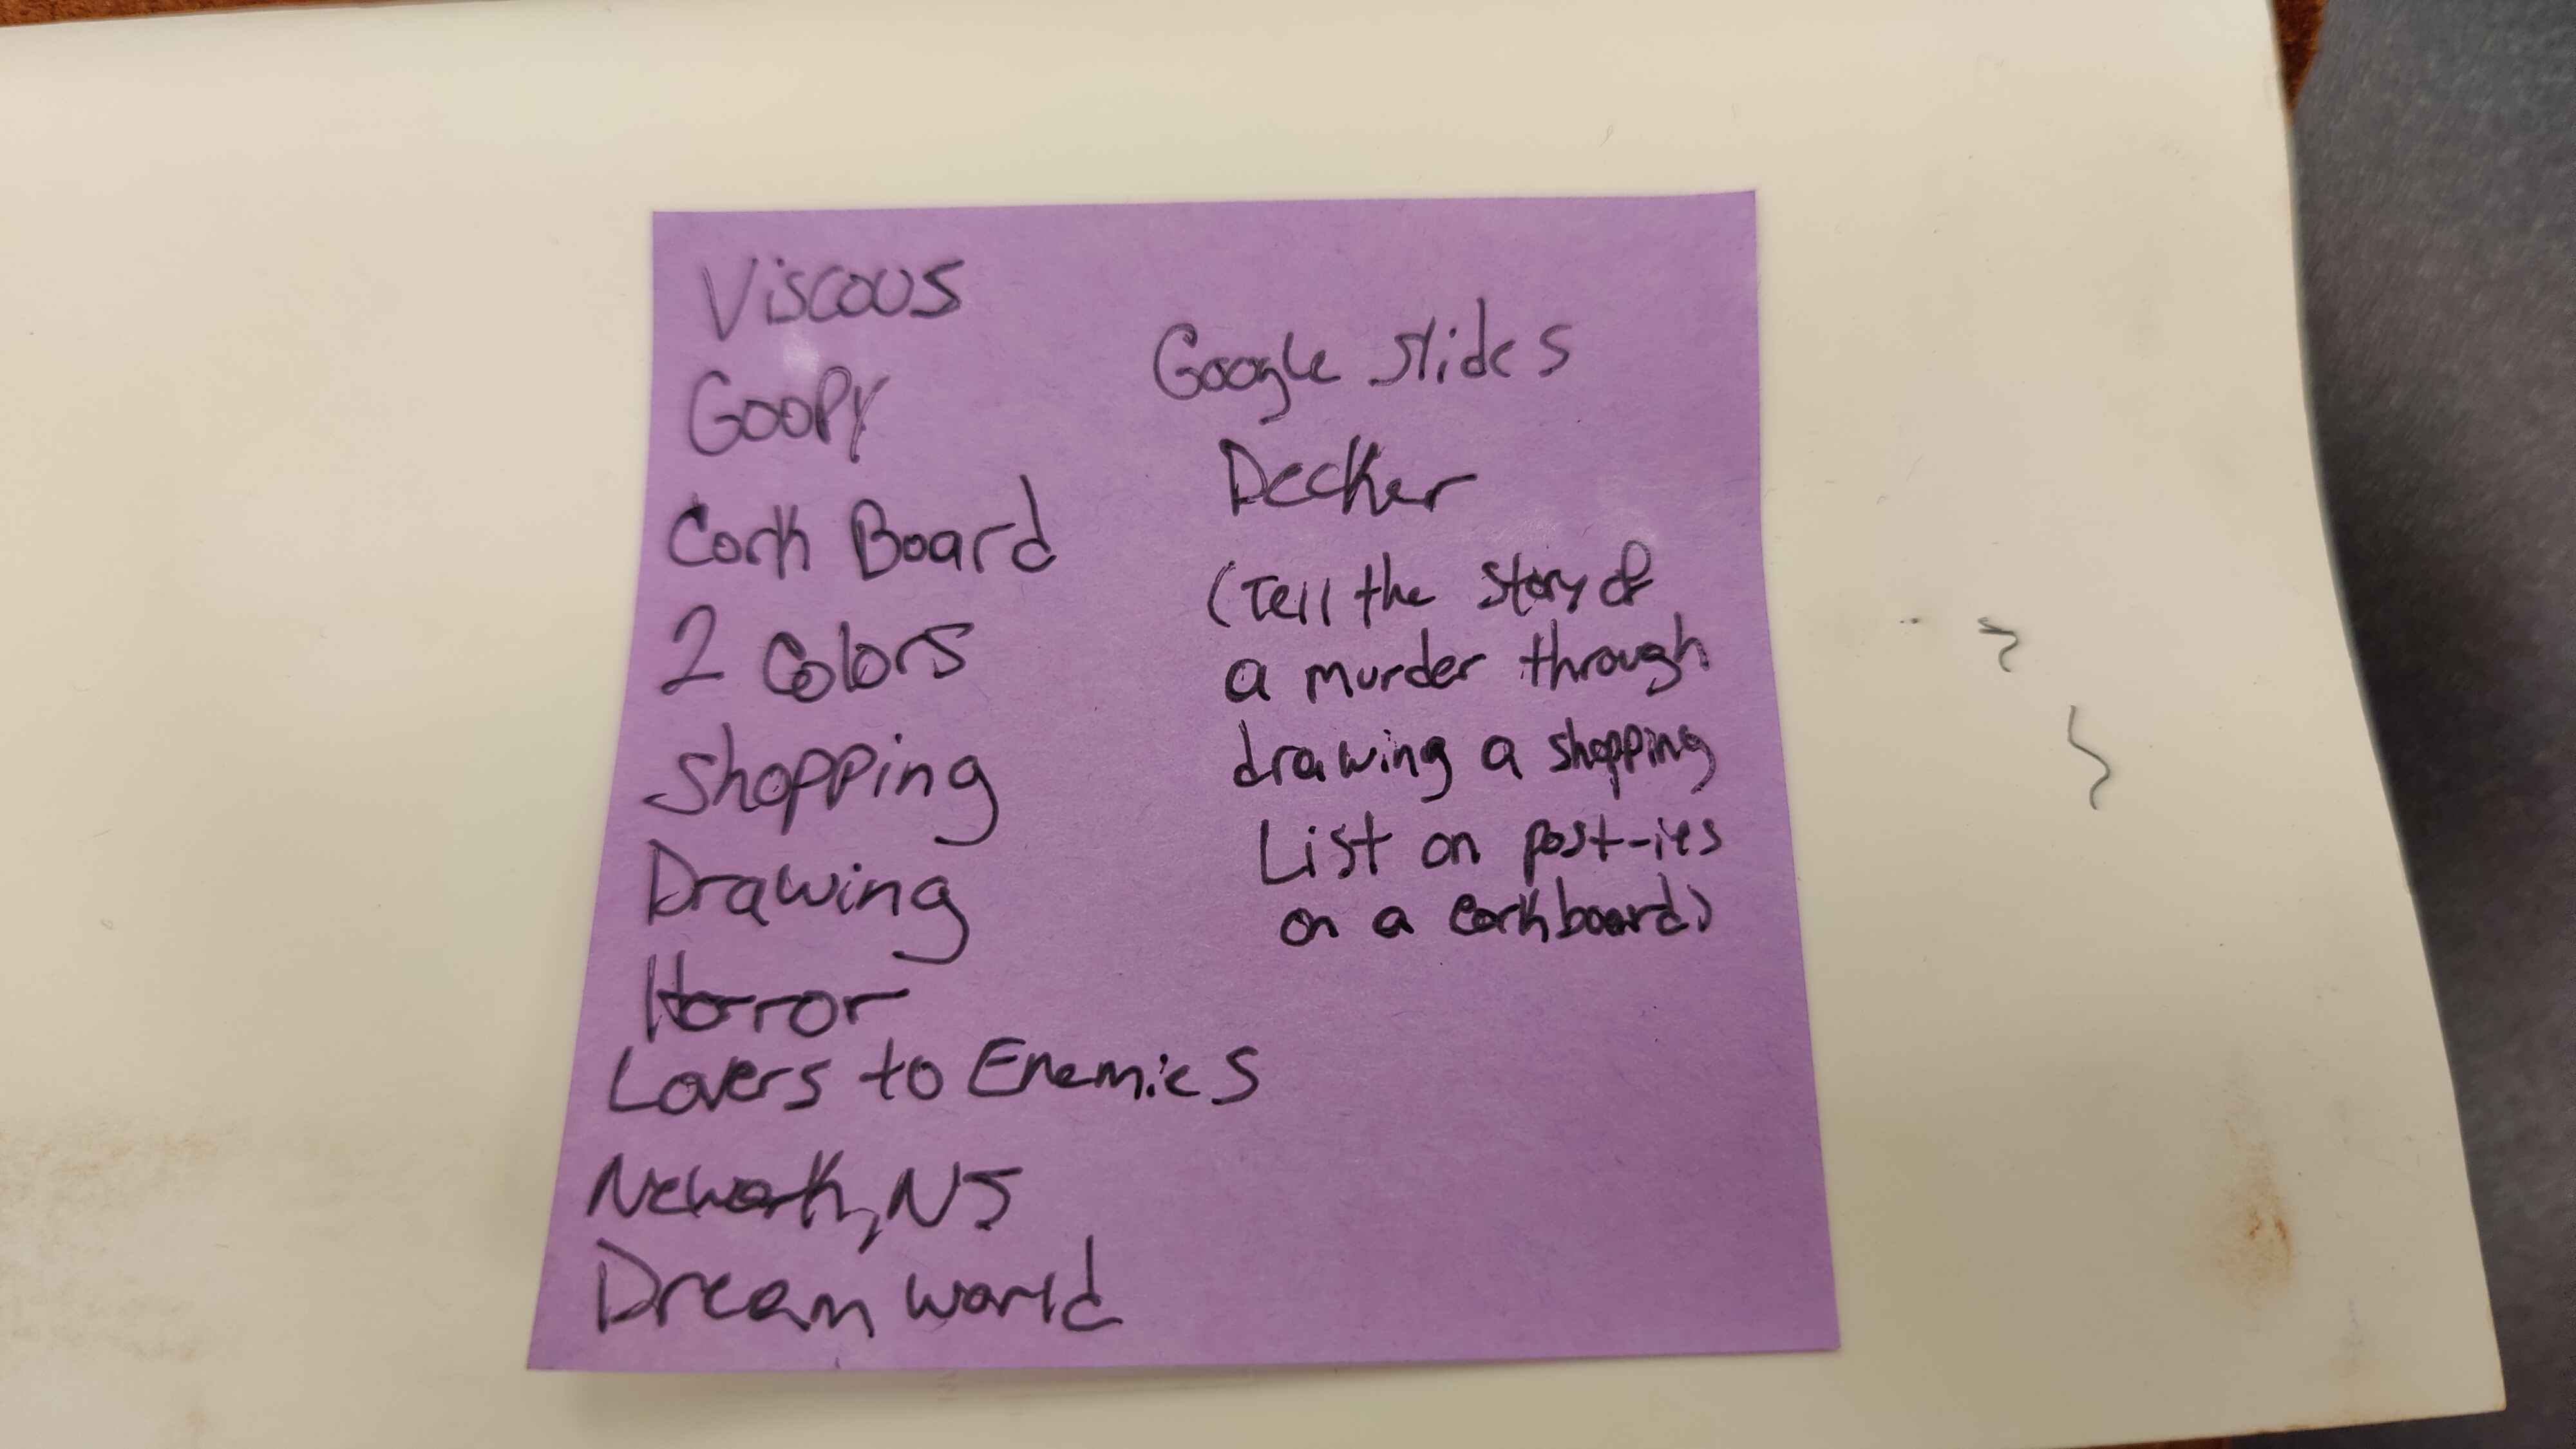 Viscous
Goopy
Cork Board
2 Colors
Shopping
Drawing
Horror
Lovers to Enemies
Newark, NJ
Dream world
Google Slides
Decker
(Tell the story of
a murder through
drawing a shopping
List on post-its
on a corkboard)